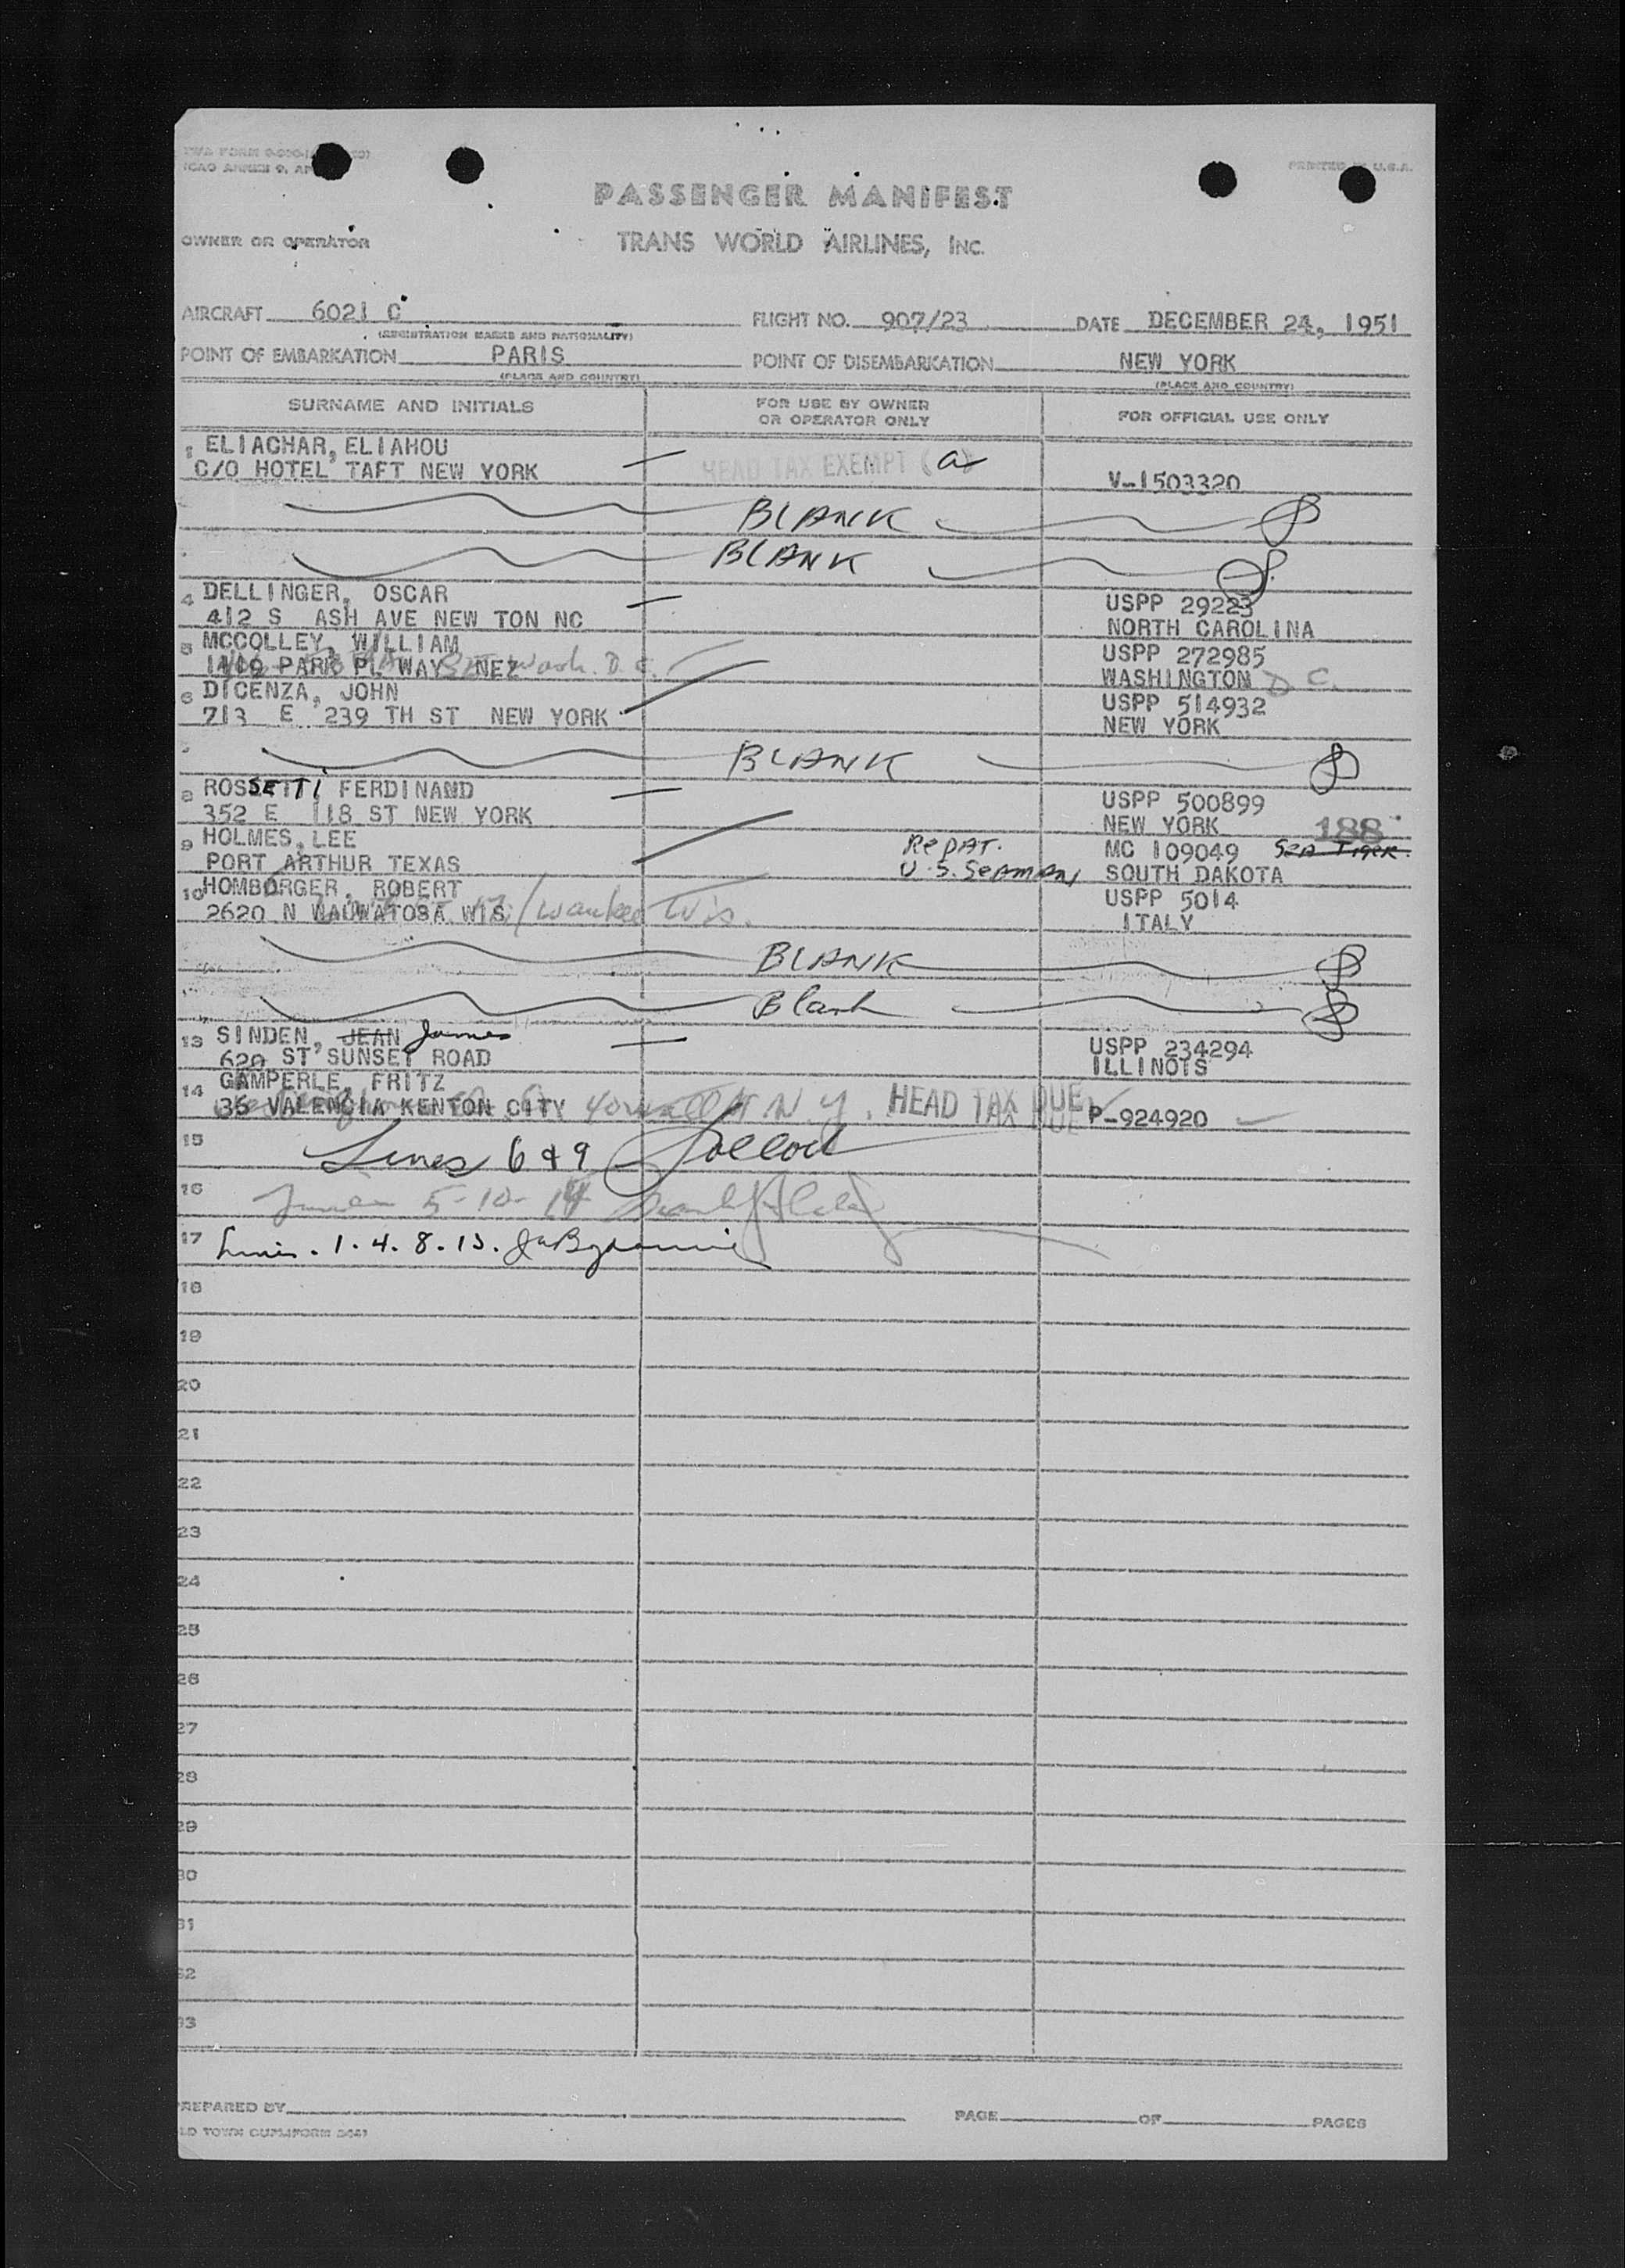 PRINTED IN U.S.A.
PASSENGER MANIFEST
OWNER OR OPERATOR TRANS WORLD AIRLINES, INC.
AIRCRAFT 6021 C FLIGHT NO. 907/23 DATE DECEMBER 24, 1951
(REGISTRATION MARKS AND NATIONALITY)
POINT OF EMBARKATION PARIS POINT OF DISEMBARKATION NEW YORK
(PLACE AND COUNTRY) (PLACE AND COUNTRY)
SURNAME AND INITIALS FOR USE BY OWNER OR OPERATOR ONLY FOR OFFICIAL USE ONLY
1 ELIACHAR, ELIAHOU
C/O HOTEL TAFT NEW YORK HEAD TAX EXEMPT (a) V-1503320
BLANK
BLANK
4 DELLINGER, OSCAR USPP 29223
412 S ASH AVE NEW TON NC NORTH CAROLINA
5 MCCOLLEY, WILLIAM USPP 272985
1410 PARK PL WAY NEZ Wash. D.C. WASHINGTON D C.
6 DICENZA, JOHN USPP 514932
713 E 239 TH ST NEW YORK NEW YORK
BLANK
8 ROSSETTI FERDINAND USPP 500899
352 E 118 ST NEW YORK NEW YORK 188
9 HOLMES, LEE Repat. MC 109049 Sea Tiger.
PORT ARTHUR TEXAS U.S. Seaman SOUTH DAKOTA
10 HOMBORGER, ROBERT USPP 5014
2620 N WAUWATOSA WIS Milwaukee Wis. ITALY
BLANK
Blank
13 SINDEN, JEAN James USPP 234294
620 ST SUNSET ROAD ILLINOIS
14 GAMPERLE, FRITZ
36 VALENCIA KENTON CITY N.Y. HEAD TAX DUE P-924920
15 Lines 6 & 9
16 5-10-14
17 Lines. 1. 4. 8. 13.
18
19
20
21
22
23
24
25
26
27
28
29
30
31
32
33
PREPARED BY PAGE OF PAGES